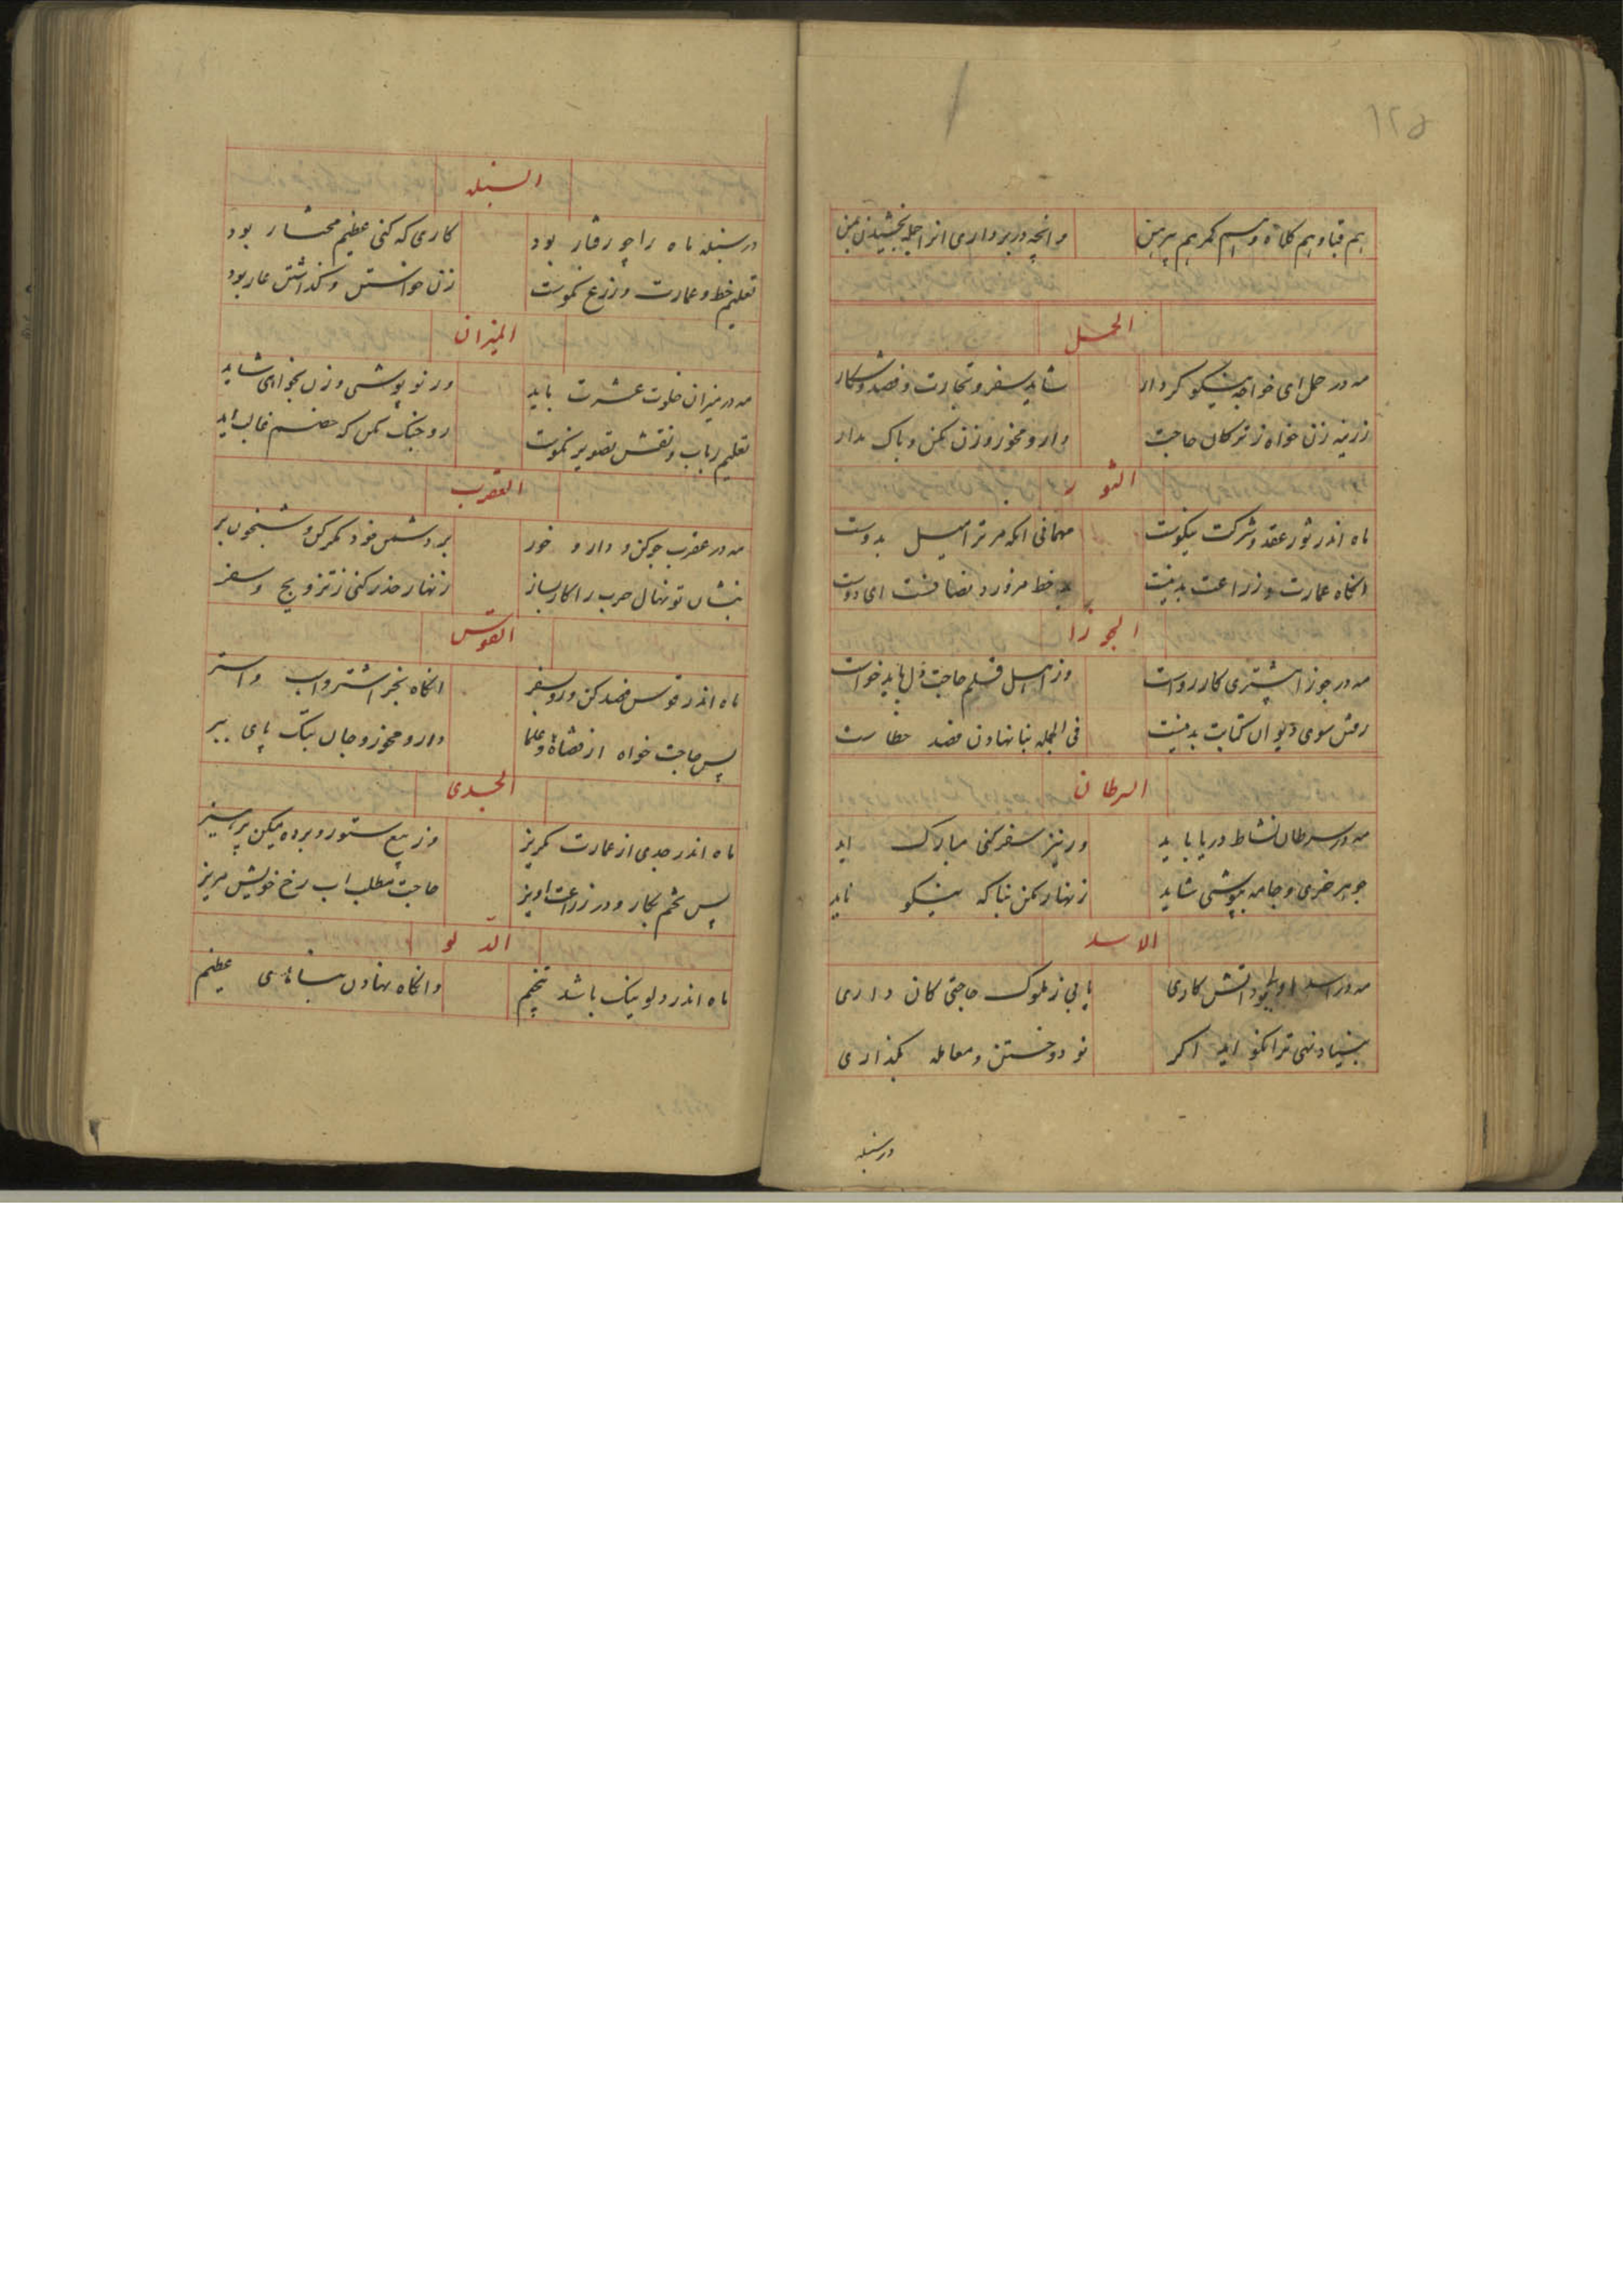 ١٢٥
هم قبا و هم کلاه و هم کمر هم پیرهن
و انچه در بر داری انرا جمله بخشیدن بمن
الحمل
مه در حمل ای خواجه نیکو کردار
شاید سفر و تجارت و فصد و شکار
زرینه زن خواه ز ترکان حاجت
دارو مخور و زن مکن و باک مدار
الثور
ماه اندر ثور عقد و شرکت نیکوست
مهمانی انکه مر ترا میل بدوست
انکاه عمارت و زراعت بد نیست
خط مرور و ای دوست
الجوزا
مه در جوزا مشتری کار رواست
وز اهل قلم حاجت دل باید خواست
رفتن سوی دیوان کتابت بد نیست
فی الجمله بنا نهادن فصد خطاست
السرطان
مه در سرطان نشاط دریا باید
ور نیز سفر کنی مبارک اید
جوهر خری و جامه بپوشی شاید
زنهار مکن بنا که نیکو ناید
الاسد
مه در اسد اتش کاری
یابی ز ملوک حاجتی کان داری
بنیاد نهی ترا نکو اید اکر
نو دوختن و معامله بگذاری
در سنبله
السنبله
در سنبله ماه را چو رفتار بود
کاری که کنی عظیم مختار بود
تعلیم خط و عمارت و زرع نکوست
زن خواستن و گذاشتن عار بود
المیزان
مه در میزان خلوت عشرت باید
ور نو پوشی و زن بخواهی شاید
تعلیم رباب و نقش تصویر نکوست
رو جنک مکن که خصم غالب اید
العقرب
مه در عقرب جو کن و دارو خور
بر دشمن خود مکر کن و شبخون بر
بنشان تو نهال حرب را کار بساز
زنهار حذر کنی ز تزویج و سفر
القوس
ماه اندر قوس فصد کن و رو بسفر
انکاه بخر اشتر و اسب و استر
پس حاجت خواه از قضاة و علما
دارو مخور و جان پای ببر
الجدی
ماه اندر جدی از عمارت مگریز
وز بیع ستور و برده میکن پرهیز
پس تخم بکار و در زراعت اویز
حاجت مطلب اب رخ خویش مریز
الدلو
ماه اندر دلو نیک باشد
وانکاه نهادن بناهای عظیم